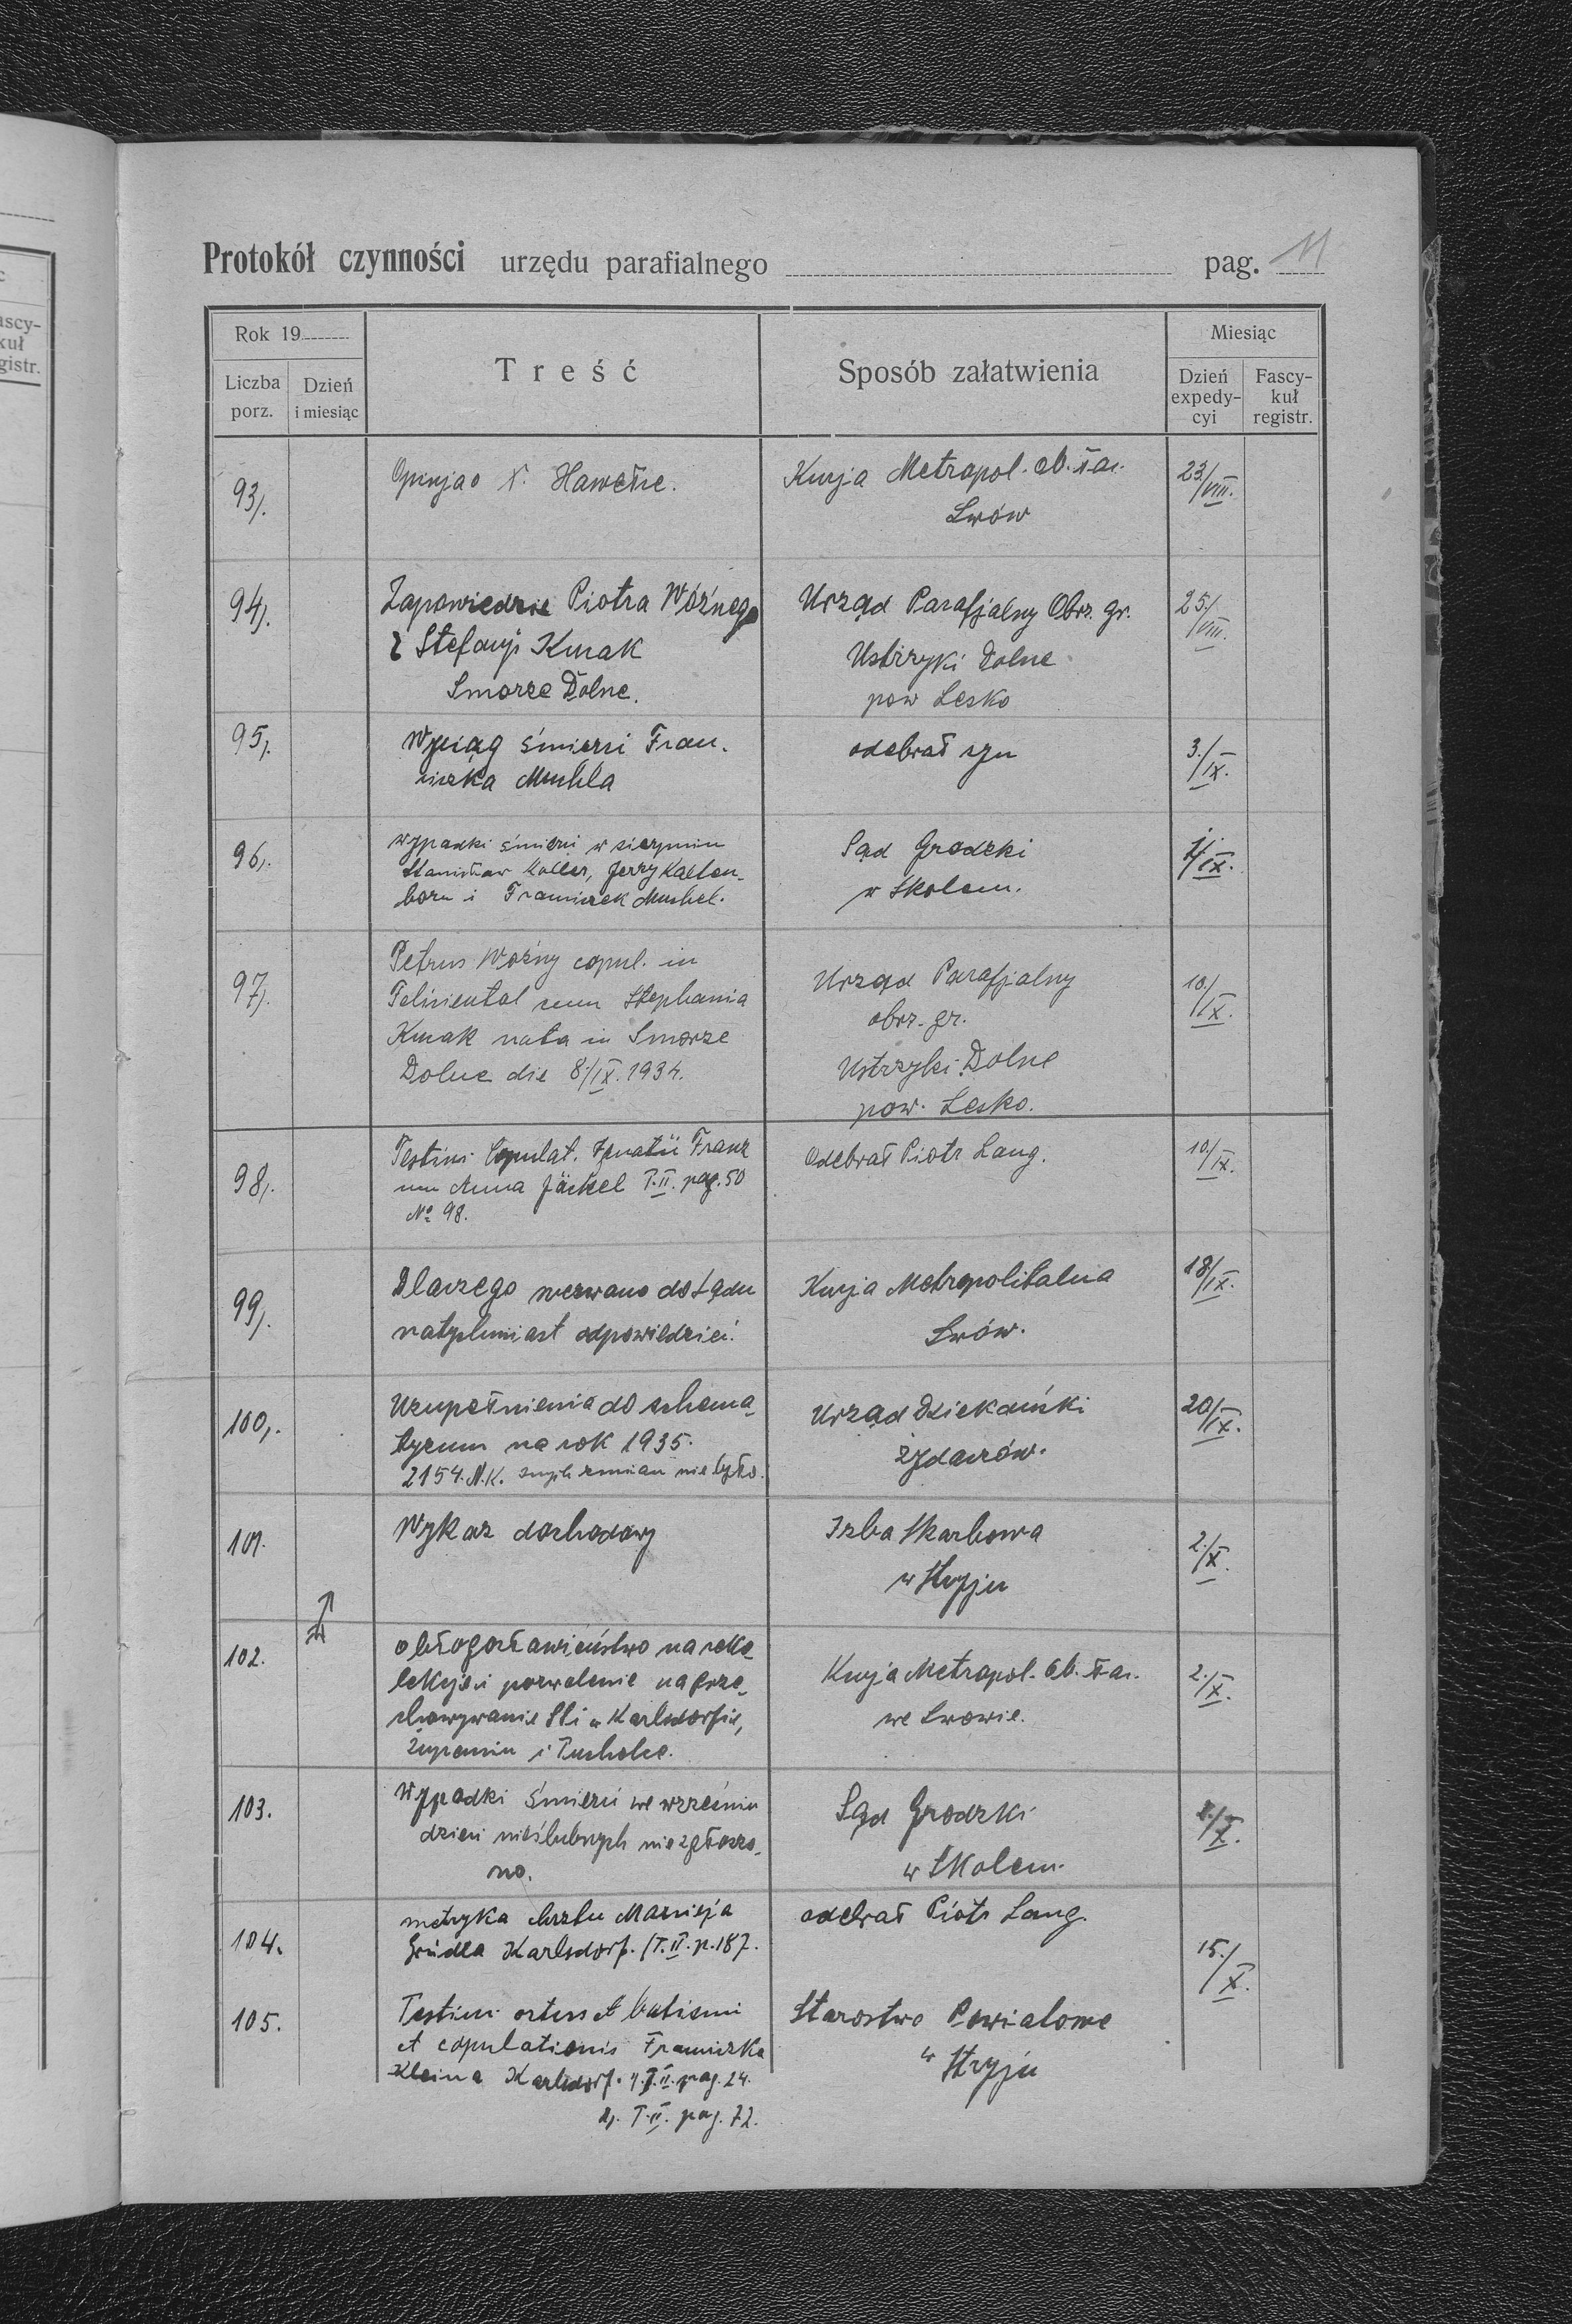 Protokół czynności urzędu parafialnego pag. 11
Rok 19
Miesiąc
Liczba porz.
Dzień i miesiąc
Treść
Sposób załatwienia
Dzień expedy-cyi
Fascy-kuł registr.
93/. Opinja o X. Hawełce. Kurja Metropol. ob. łac. 23/VIII.
Lwów
94/. Zapowiedzie Piotra Woźnego Urząd Parafjalny Obrz. gr. 25/VIII.
z Stefanji Kmak Ustrzyki Dolne
Smorze Dolne. pow Lesko
95/. Wyciąg śmierci Fran- odebrał syn 3./IX.
ciszka Muchla
96/. wypadki śmierci w sierpniu Sąd Grodzki 1/IX.
Stanisław Koller, Jerzy Kalten- w Skolem.
born i Franciszek Muchel.
97/. Petrus Woźny copul. in Urząd Parafjalny 10/IX.
Feliziental cum Stephania obrz. gr.
Kmak nata in Smorze Ustrzyki Dolne
Dolne die 8/IX. 1934. pow. Lesko.
98/. Testim. Copulat. Ignatii Franz Odebrał Piotr Lang. 10/IX.
cum Anna Jäckel T. II. pag. 50
No 98.
99/. Dlaczego wezwano do Sądu Kurja Metropolitalna 18/IX.
natychmiast odpowiedzieć. Lwów.
100/. Uzupełnienia do schema- Urząd Dziekański 20/IX.
tyzmu na rok 1935.
2154. N.K. zmian nie było.
101. Wykaz dochodowy Izba Skarbowa 2./X.
w Stryju
102. o błogosławieństwo na reko- Kurja Metropol. Ob. łac. 2./X.
lekcje i pozwolenie na prze- we Lwowie.
chowywanie w Karlsdorfie,
Żupaniu i Tucholce.
103. Wypadki śmierci we wrześniu Sąd Grodzki 2/X.
dzieci nieślubnych nie zgłoszo- w Skolem.
no.
104. metryka chrztu Macieja odebrał Piotr Lang. 15./X.
Gründla Karlsdorf. (T. II. p. 187.
105. Testim. ortus et batismi Starostwo Powiatowe
et copulationis Franciszka w Stryju
Kleina Karlsdorf. 1. T. II. pag. 24.
2. T. II. pag. 72.